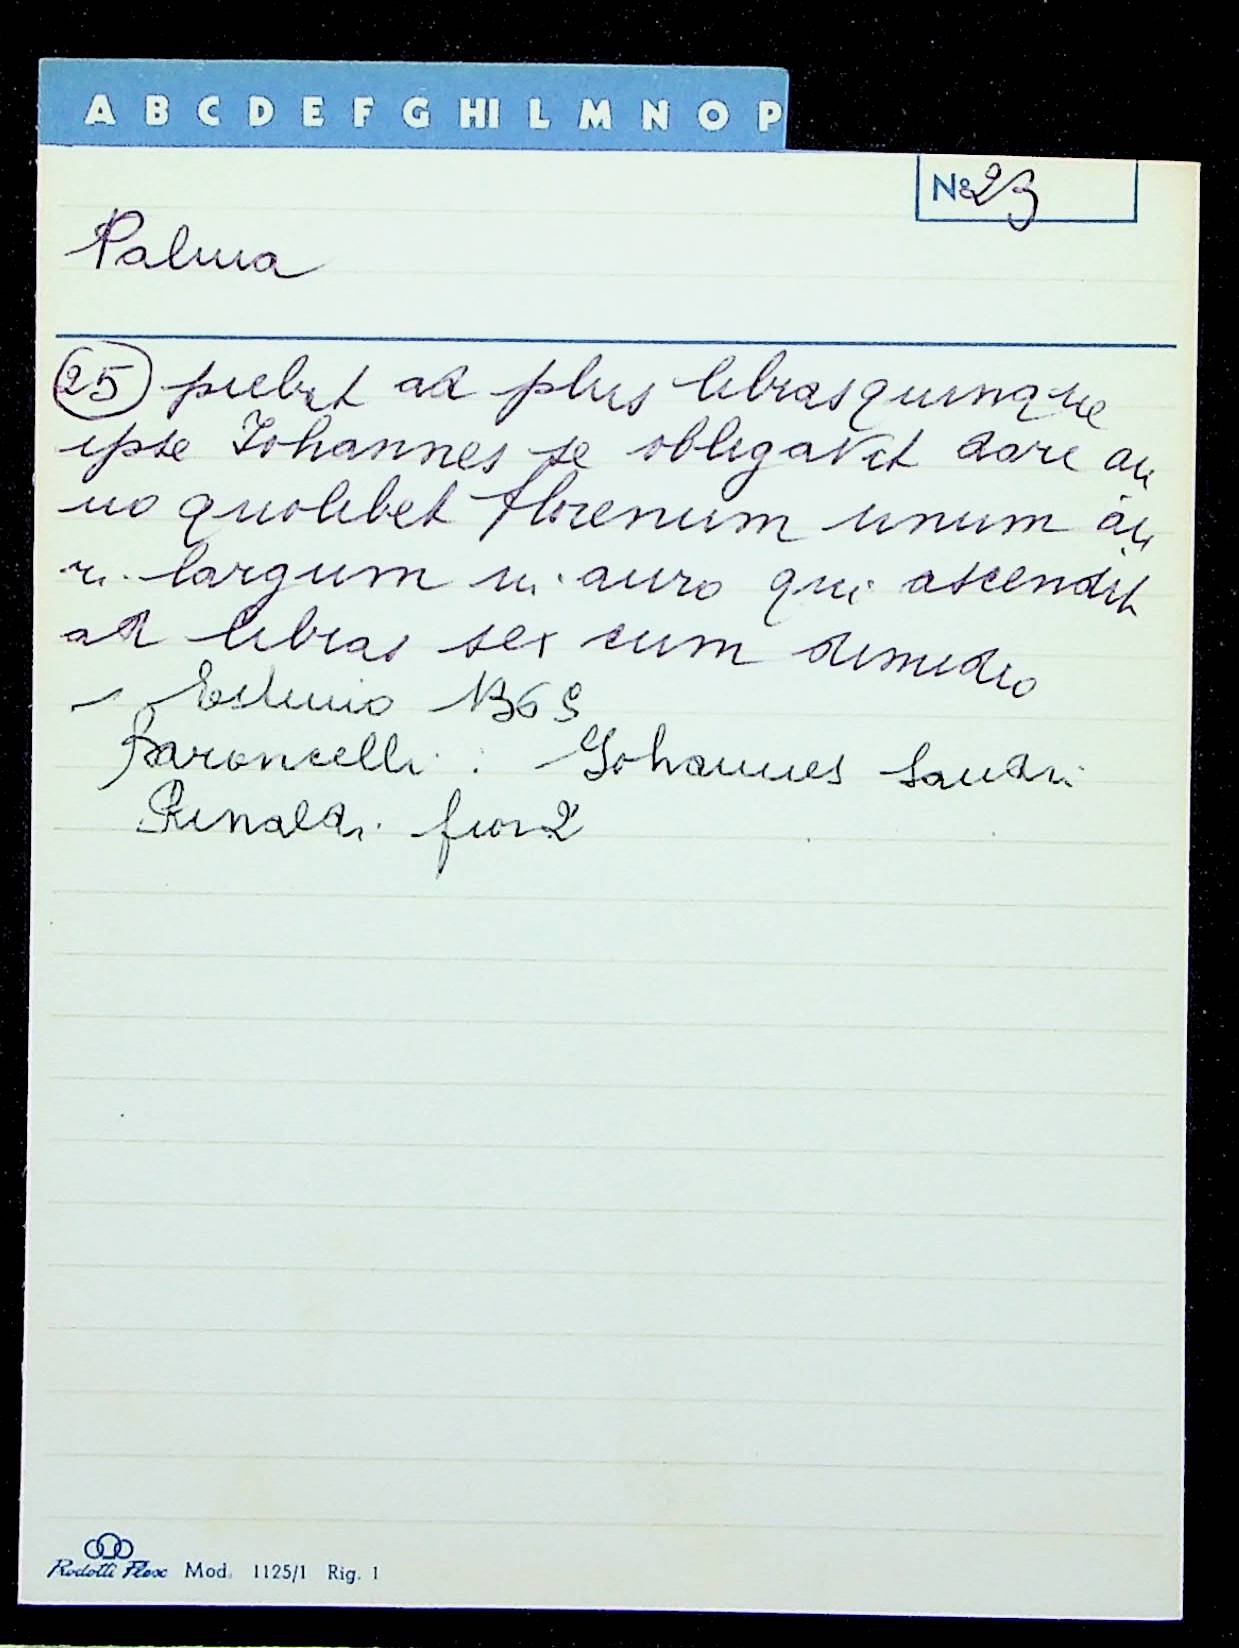 A B C D E F G HI L M N O P
No 23
Palma
25 prebet ad plus libras quinque
ipse Johannes se obligavit dare an
no quolibet florenum unum au
ri largum in auro qui ascendit
ad libras sex cum dimidio
- Estimo 1369
Baroncelli : Johannes Sandri
Rinaldi fior 2
Rodotti Flex Mod. 1125/1 Rig. 1